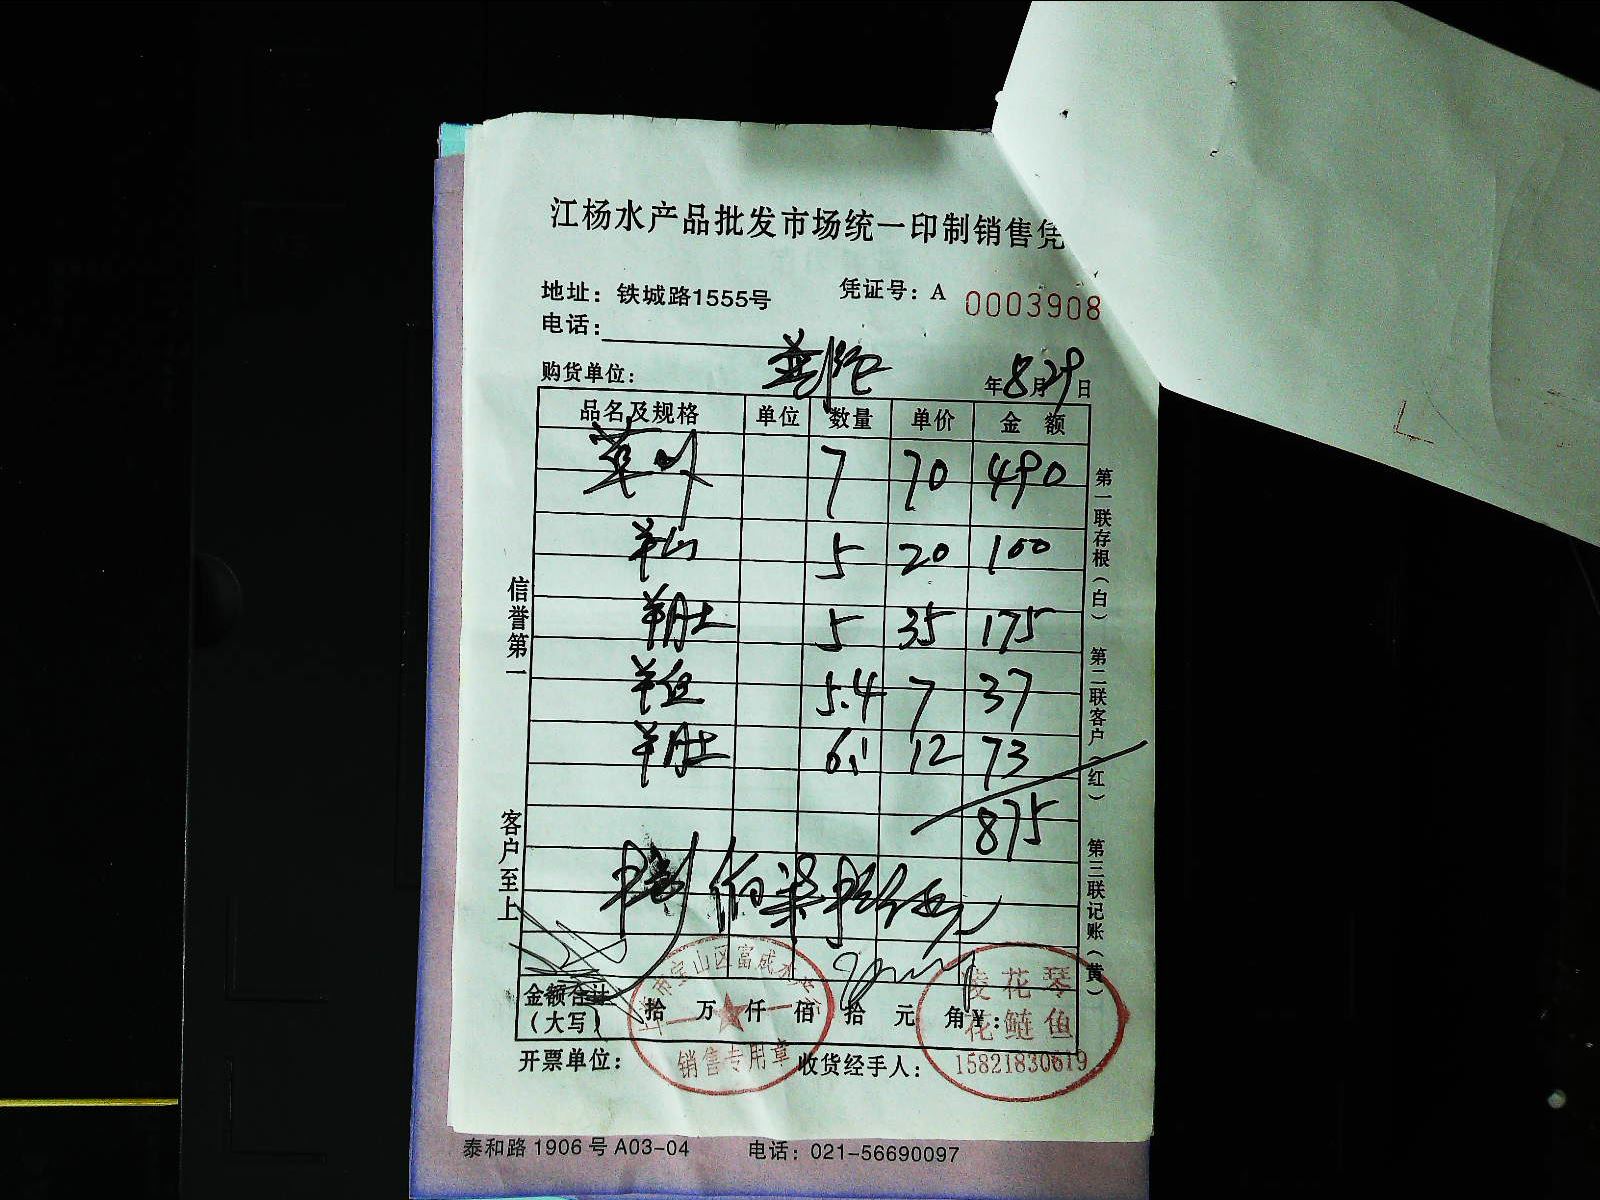 江杨水产品批发市场统一印制销售凭
地址：铁城路1555号
凭证号：A 0003908
电话：
购货单位： 普陀
年8月29日
品名及规格 单位 数量 单价 金 额
7 70 490
5 20 100
羊肚 5 35 175
5.4 7 37
羊肚 6.1 12 73
875
捌佰柒拾伍元
金额合计（大写） 拾 万 仟 佰 拾 元 角 ¥：
开票单位：
收货经手人：
信誉第一
客户至上
第一联存根（白） 第二联客户（红） 第三联记账（黄）
市宝山区富成水产
销售专用章
凌花琴
花鲢鱼
15821830619
泰和路1906号A03-04 电话：021-56690097